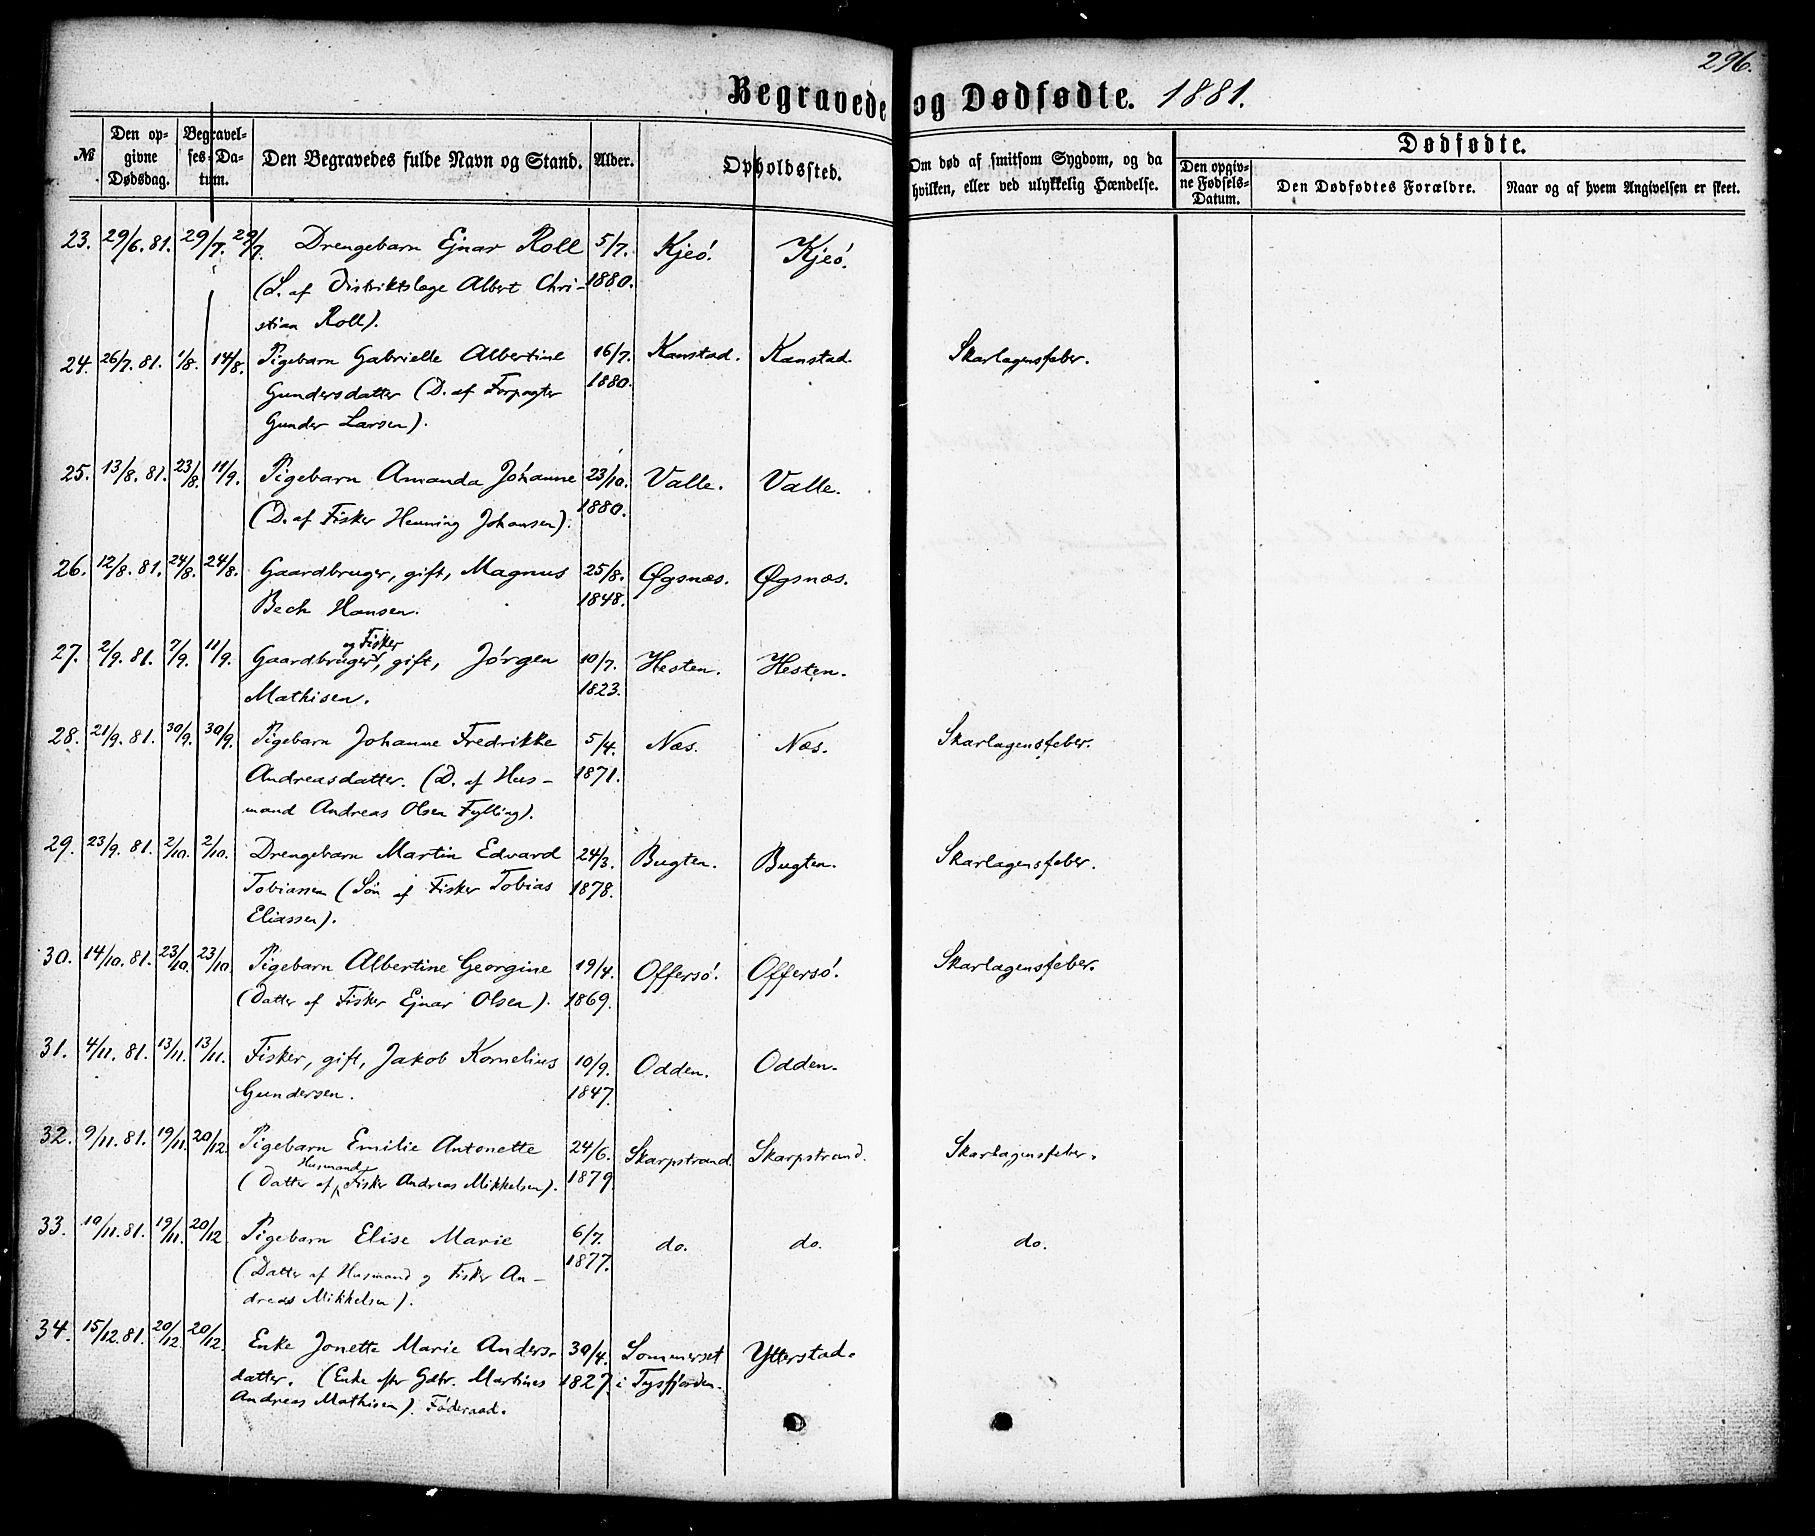 296.
Begravede og Dødfødte. 1881.
№ Den opgivne Dødsdag. Begravelses-Datum. Den Begravedes fulde Navn og Stand. Alder. Opholdssted. Om død af smitsom Sygdom, og da hvilken, eller ved ulykkelig Hændelse. Dødfødte. Den opgivne Fødsels-Datum. Den Dødfødtes Forældre. Naar og af hvem Angivelsen er skeet.
23. 29/6. 81. 29/7. 29/7. Drengebarn Ejnar Roll 5/7. Kjeö. Kjeö.
(S. af Distriktslæge Albert Chri- 1880.
stian Roll).
24. 26/7. 81. 1/8. 14/8. Pigebarn Gabrielle Albertine 16/7. Kanstad. Kanstad. Skarlagensfeber.
Gundersdatter (D. af Forpagter 1880.
Gunder Larsen).
25. 13/8. 81. 23/8. 11/9. Pigebarn Amanda Johanne 23/10. Valle. Valle.
(D. af Fisker Henning Johansen). 1880.
26. 12/8. 81. 24/8. 24/8. Gaardbruger, gift, Magnus 25/8. Øgsnæs. Øgsnæs.
Bech Hansen. 1848.
og Fisker
27. 2/9. 81. 7/9. 11/9. Gaardbruger, gift, Jörgen 10/7. Hesten. Hesten.
Mathisen. 1823.
28. 21/9. 81. 30/9. 30/9. Pigebarn Johanne Fredrikke 5/4. Næs. Næs. Skarlagensfeber.
Andreasdatter. (D. af Hus- 1871.
mand Andreas Olsen Fylling).
29. 23/9. 81. 2/10. 2/10. Drengebarn Martin Edvard 24/3. Bugten. Bugten. Skarlagensfeber.
Tobiassen (Sön af Fisker Tobias 1878.
Eliassen).
30. 14/10. 81. 23/10. 23/10. Pigebarn Albertine Georgine 19/4. Offersö. Offersö. Skarlagensfeber.
(Datter af Fisker Ejnar Olsen). 1869.
31. 4/11. 81. 13/11. 13/11. Fisker, gift, Jakob Kornelius 10/9. Odden. Odden.
Gundersen. 1847.
32. 9/11. 81. 19/11. 20/12. Pigebarn Emilie Antonette 24/6. Skarpstrand. Skarpstrand. Skarlagensfeber.
Husmand
(Datter af Fisker Andreas Mikkelsen). 1879
33. 10/11. 81. 19/11. 20/12 Pigebarn Elise Marie 6/7. do. do. do.
(Datter af Husmand og Fisker An- 1877.
dreas Mikkelsen).
34. 15/12. 81. 20/12. 20/12. Enke Jonette Marie Anders- 30/4. Sommerset Ytterstad.
datter. (Enke efter Gdbr. Martinus 1827. i Tysfjorden.
Andreas Mathisen). Föderaad.